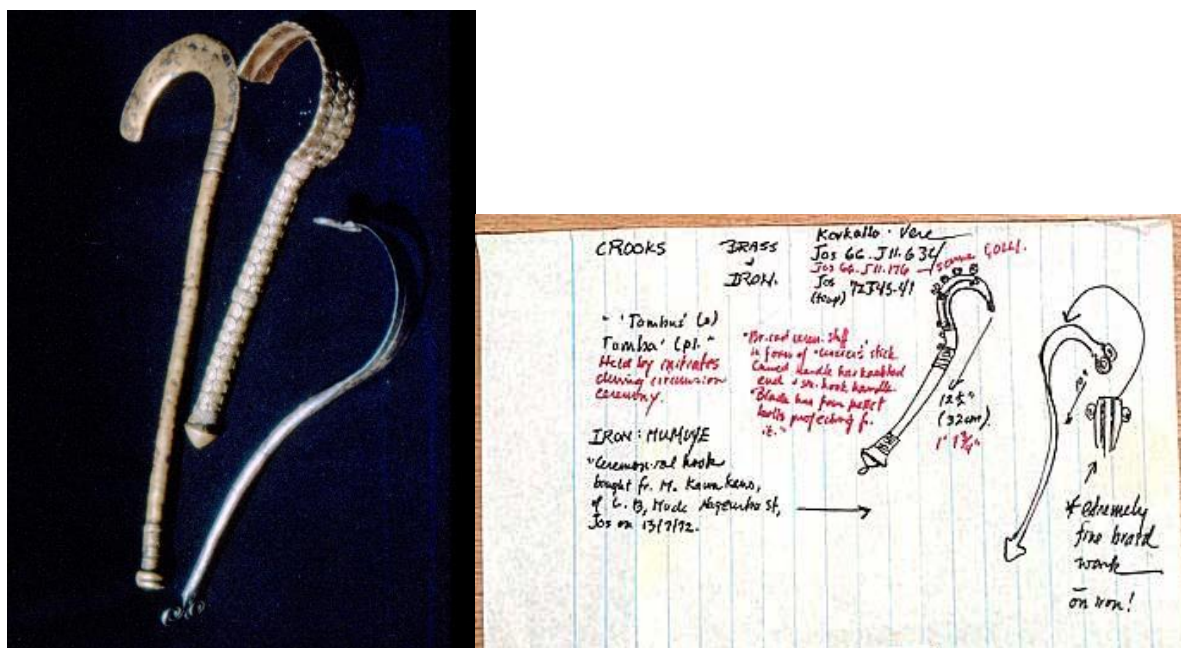 CROOKS
BRASS
+
IRON.
Korkallo · Vere
Jos 66. J 11. 634
Jos 66. J 11. 176 — same
Jos 72J45.41
(temp)
"'Tombus' (s)
Tomba' (pl."
Held by initiates
during circumcision
ceremony.
"Broad cerem. staff
in form of stick
handle has knobbed
end + hook handle.
"Blade has four
projecting f.
it."
12 1/2"
(32cm)
1' 1 3/4"
10"
IRON: MUMUYE
"Ceremonial hook
bought fr. M. Kawu Kano,
of C. 13, St,
Jos on 13/7/72.
* extremely
fine braid
work
on iron!